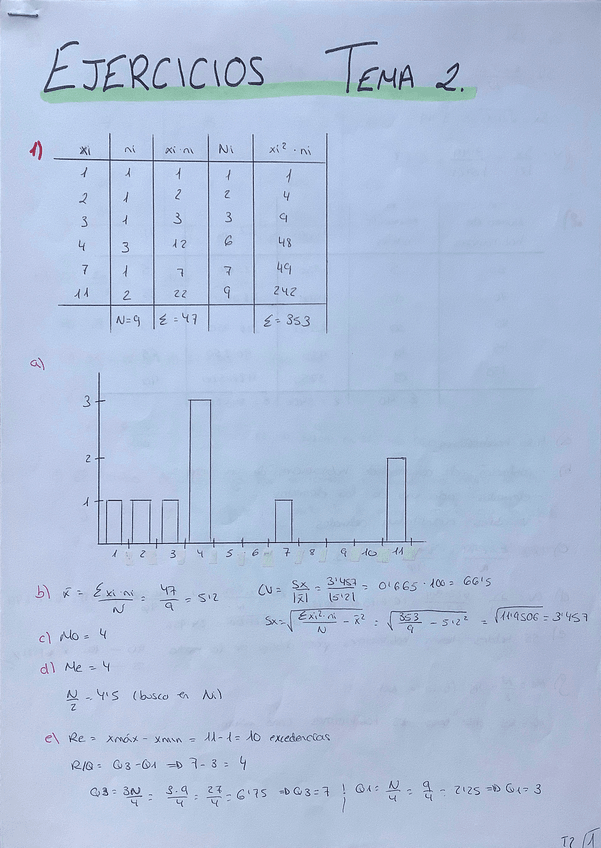 EJERCICIOS TEMA 2.
1)
xi ni xi·ni Ni xi²·ni
1 1 1 1 1
2 1 2 2 4
3 1 3 3 9
4 3 12 6 48
7 1 7 7 49
11 2 22 9 242
N=9 Σ=47 Σ=353
a)
3
2
1
1 2 3 4 5 6 7 8 9 10 11
b) x̄ = Σxi·ni/N = 47/9 = 5'2 CV = Sx/|x̄| = 3'457/|5'2| = 0'665·100 = 66'5
Sx = √(Σxi²·ni/N - x̄²) = √(353/9 - 5'2²) = √11'9506 = 3'457
c) Mo = 4
d) Me = 4
N/2 = 4'5 (busco en Ni)
e) Re = xmáx - xmin = 11-1 = 10 excedencias
RIQ = Q3-Q1 => 7-3 = 4
Q3 = 3N/4 = 3·9/4 = 27/4 = 6'75 => Q3=7 ; Q1 = N/4 = 9/4 = 2'25 => Q1=3
T2 1